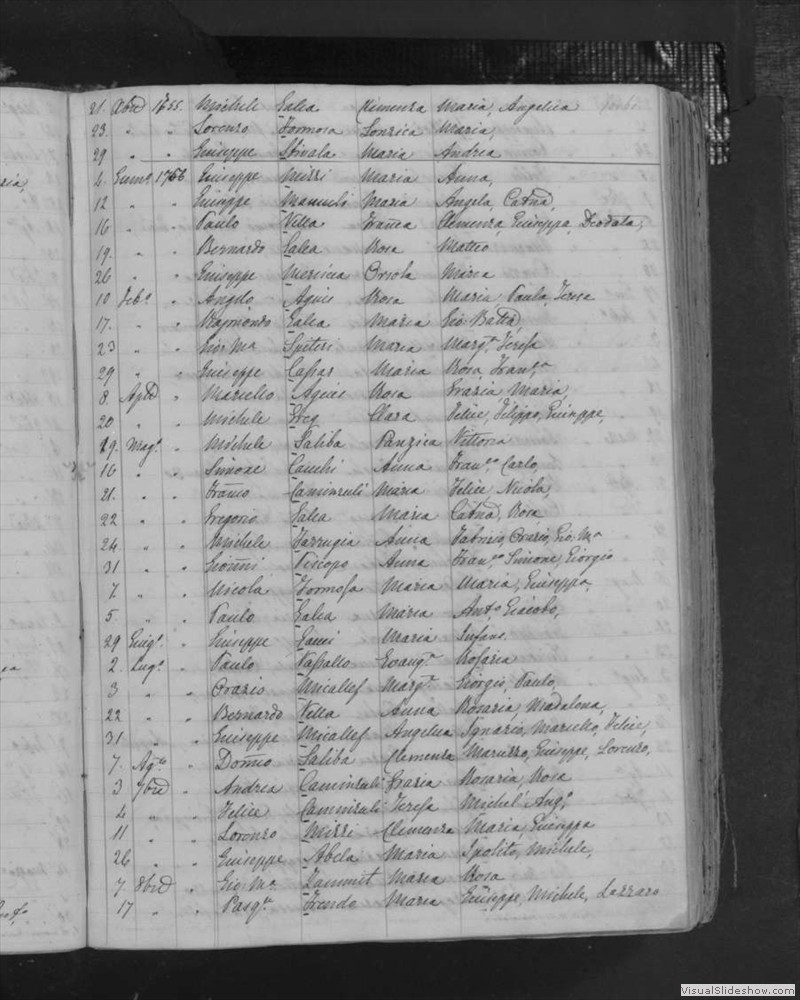 21. Xbre 1755. Michele Galea Clemenza Maria, Angelica
23. " " Lorenzo Formosa Lonzica Maria,
29 " " Giuseppe Maria Andrea
4. Genn. 1756 Giuseppe Mizzi Maria Anna,
12 " " Giuseppe Mamuli Maria Angela, Catnd,
16 " " Paulo Vella Franca Clemenza, Giuseppa, Deodata,
19. " " Bernardo Galea Rosa Matteo
26 " " Giuseppe Orsola
10 Feb.o " Angelo Agius Rosa Maria Paula Teresa
17. " " Raimondo Galea Maria Gio Batta,
23 " " Gio: Ma Spiteri Maria Marg.ta Teresa
29 " " Giuseppe Cassar Maria Rosa, Fran.ca
8. Aple " Marcello Agius Rosa Grazia, Maria,
20 " " Michele Clara Felice, Filippo, Giuseppe,
19. Mag.o " Michele Saliba Panzica Vittoria
16 " " Simone Cauchi Anna Fran.co Carlo,
21. " " Franco Caminzuli Maria Felice Nicola,
22 " " Gregorio Galea Maria Catnd, Rosa
24 " " Michele Farrugia Anna Fabrizio, Orazio, Gio: Ma
31 " " Gionni Piscopo Anna Fran.co Simone, Giorgio
7 " " Nicola Formosa Maria Maria, Giuseppa,
5. " " Paulo Galea Maria Ant.o Giacobo,
29 Giug.o " Giuseppe Maria Infans.
2. Lug.o " Paulo Vassallo Evang.ta Rosaria
3 " " Orazio Micallef Marg.ta Giorgio, Paulo,
22 " " Bernardo Vella Anna Rosaria, Madalena,
31 " " Giuseppe Micallef Angelica Ignazio, Marcello, Felice,
7. Ag.to " Domco Saliba Clemenza Maruzzo, Giuseppe, Lorenzo,
3 7bre " Andrea Caminzuli Grazia Rosaria, Rosa
4 " " Felice Caminzuli Teresa Michel' Ang.o
11 " " Lorenzo Mizzi Clemenza Maria, Giuseppa
26 " " Giuseppe Abela Maria Ipolito, Michele,
7. 8bre " Gio: Ma Zammit Maria Rosa
17 " " Pasq.le Maria Giuseppe, Michele, Lazzaro
VisualSlideshow.com